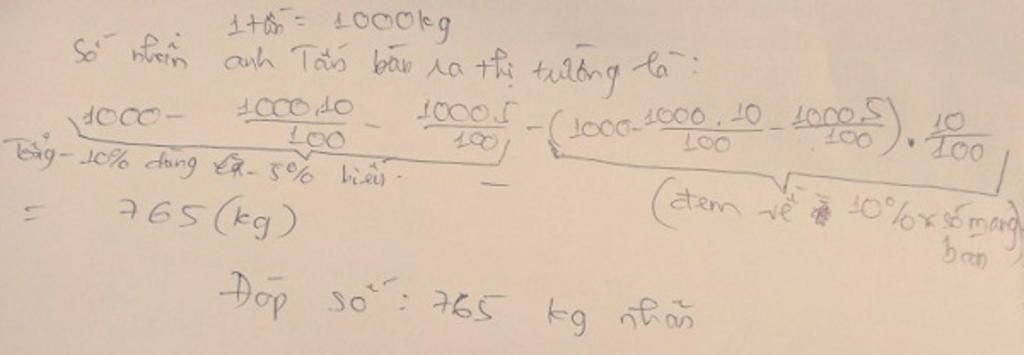 1 tấn = 1000kg
Số nhãn anh Tấn bán ra thị trường là:
1000 - 1000.10/100 - 1000.5/100 - (1000 - 1000.10/100 - 1000.5/100) . 10/100
Tổng - 10% dùng - 5% biếu. - (đem về 10% x số mang bán)
= 765 (kg)
Đáp số: 765 kg nhãn